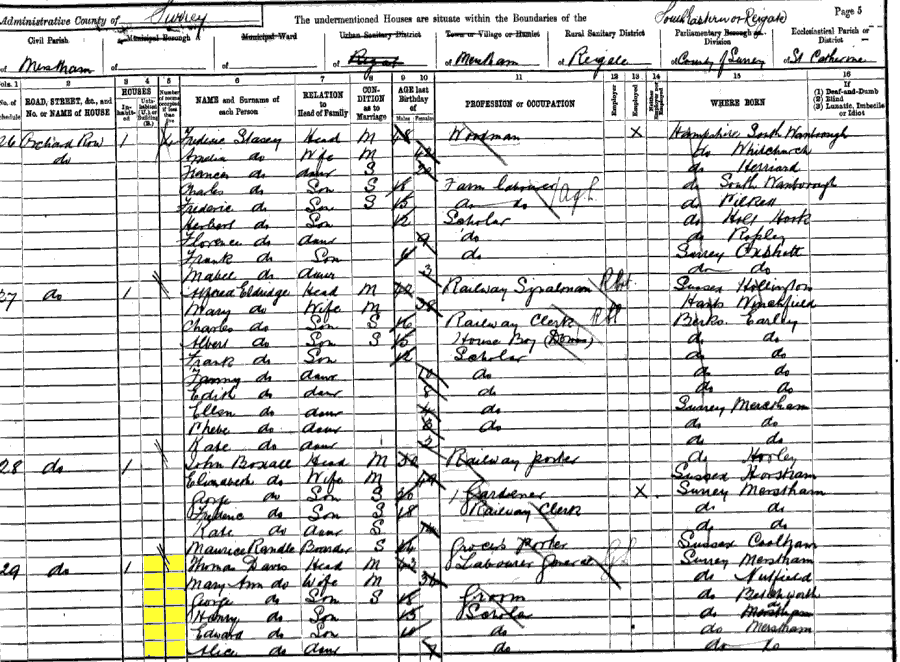 Administrative County of Surrey The undermentioned Houses are situate within the Boundaries of the South Eastern or Reigate Page 5
Civil Parish Municipal Borough Municipal Ward Urban Sanitary District Town or Village or Hamlet Rural Sanitary District Parliamentary Borough or Division Ecclesiastical Parish or District
of Merstham of of of of Merstham of Reigate of County of Surrey of St Catherine
Cols. 1 2 3 4 5 6 7 8 9 10 11 12 13 14 15 16
No. of Schedule ROAD, STREET, &c., and No. or NAME of HOUSE HOUSES Inhabited NAME and Surname of each Person RELATION to Head of Family CONDITION as to Marriage AGE last Birthday of Males Females PROFESSION or OCCUPATION Employer Employed Neither WHERE BORN (1) Deaf-and-Dumb (2) Blind (3) Lunatic, Imbecile or Idiot
26 Orchard Row 1 Frederic Stacey Head M 48 Woodman X Hampshire South Wanborough
do Amelia do Wife M do Whitchurch
Frances do daur S do Herriard
Charles do Son S 18 Farm labourer Ag.L. do South Wanborough
Frederic do Son S 15 do do do
Herbert do Son 12 Scholar do
Florence do daur 9 do do Ropley
Frank do Son do Surrey Oxshott
Mabel do daur 3 do do
27 do 1 Alfred Eldridge Head M Railway Signalman Sussex Hollington
Mary do Wife M 38 Hants Winchfield
Charles do Son S 16 Railway Clerk Berks Earley
Albert do Son S 15 House Boy do do
Frank do Son 12 Scholar do do
Fanny do daur 10 do do do
Edith do daur 8 do do do
Ellen do daur do Surrey Merstham
Phebe do daur do do do
Kate do daur 2 do do
28 do 1 John Boxall Head M Railway porter do Horley
Elizabeth do Wife M Sussex Horsham
George do Son S 20 Gardener X Surrey Merstham
Frederic do Son S 18 Railway Clerk do do
Kate do daur S do do
Maurice Randle Boarder S Grocer's porter Sussex Coolham
29 do 1 Thomas Davis Head M Labourer General Surrey Merstham
Mary Ann do Wife M do Nutfield
George do Son S 18 Groom do Betchworth
Henry do Son 13 Scholar do Merstham
Edward do Son 10 do do Merstham
Alice do daur 7 do do do